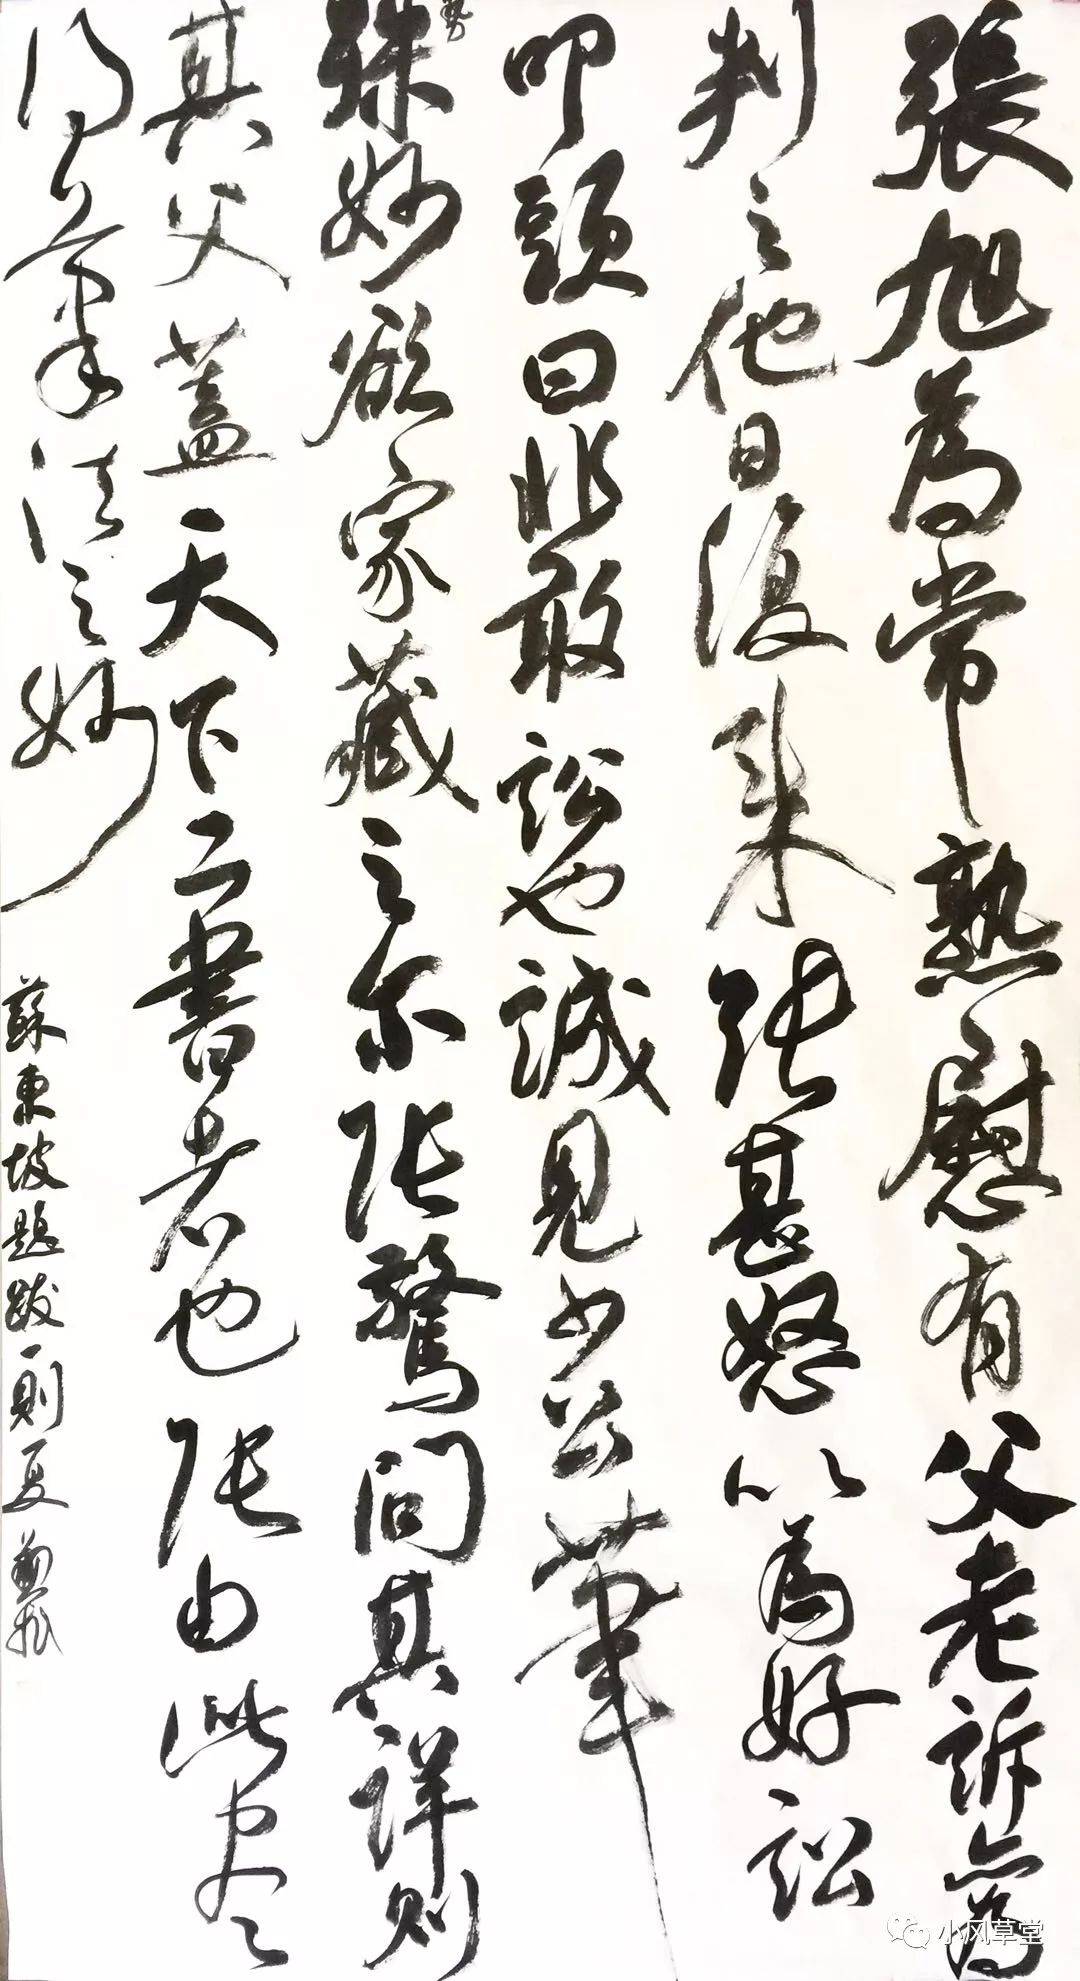 張旭為常熟慰有父老訴亦為
判之他日復来張甚怒以為好訟
叩頭曰非敢訟也誠見少公筆
勢
殊妙欲家藏之尔張驚問其詳則
其父蓋天下工書者也張由此盡
得筆法之妙
蘇東坡題跋一則夏
小风草堂